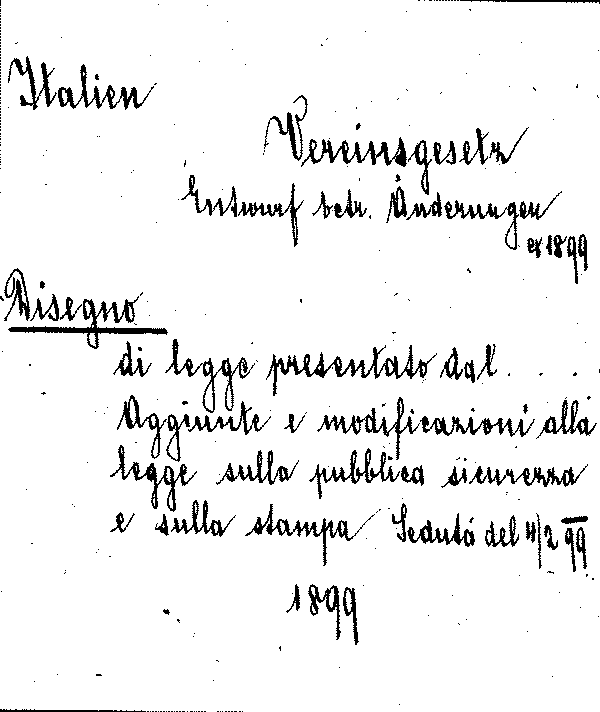 Italien
Vereinsgesetz
Entwurf betr. Änderungen
ex 1899
Disegno
di legge presentato dal . . . .
Aggiunte e modificazioni alla
legge sulla pubblica sicurezza
e sulla stampa Seduta del 4/2 99
1899